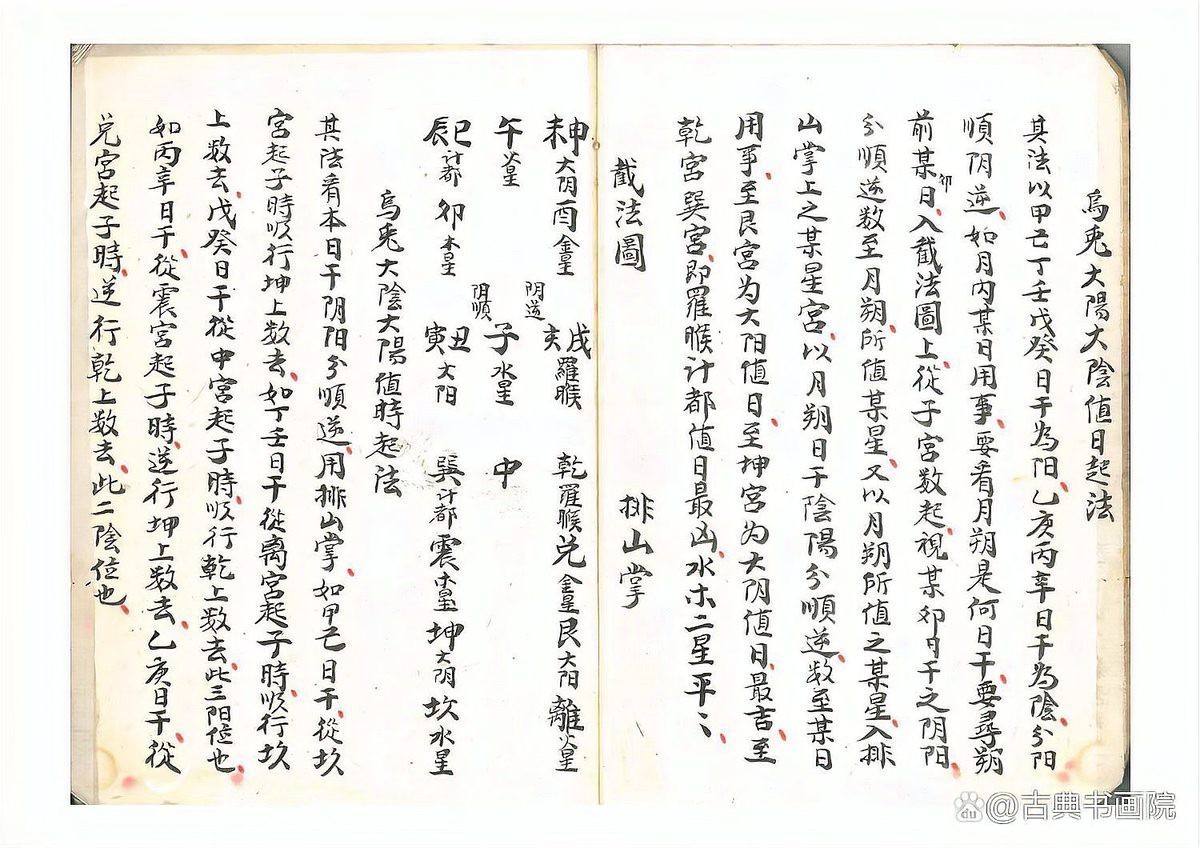 烏兎大陽大陰值日起法
其法以甲己丁壬戊癸日干為阳乙庚丙辛日干為陰分阳
順阴逆如月内某日用事要看月朔是何日干要尋朔
前某卯日入截法圖上從子宮数起視某卯日干之阴阳
分順逆数至月朔所值某星又以月朔所值之某星入排
山掌上之某星宮以月朔日干陰陽分順逆数至某日
用事至艮宮为大阳值日至坤宮为大阴值日最吉至
乾宮巽宮即羅睺计都值日最凶水木二星平〻
截法圖　排山掌
未申大阴酉金星　戌亥羅睺　乾羅睺兑金星艮大阳離火星
阴逆
午火星　子水星　中
阴順
辰巳计都卯木星　丑寅大阳　巽计都震木星坤大阴坎水星
烏兎大陰大陽值時起法
其法看本日干阴阳分順逆用排山掌如甲己日干從坎
宮起子時順行坤上数去如丁壬日干從离宮起子時順行坎
上数去戊癸日干從中宮起子時順行乾上数去此三阳位也
如丙辛日干從震宮起子時逆行坤上数去乙庚日干從
兑宮起子時逆行乾上数去此二陰位也
@古典书画院